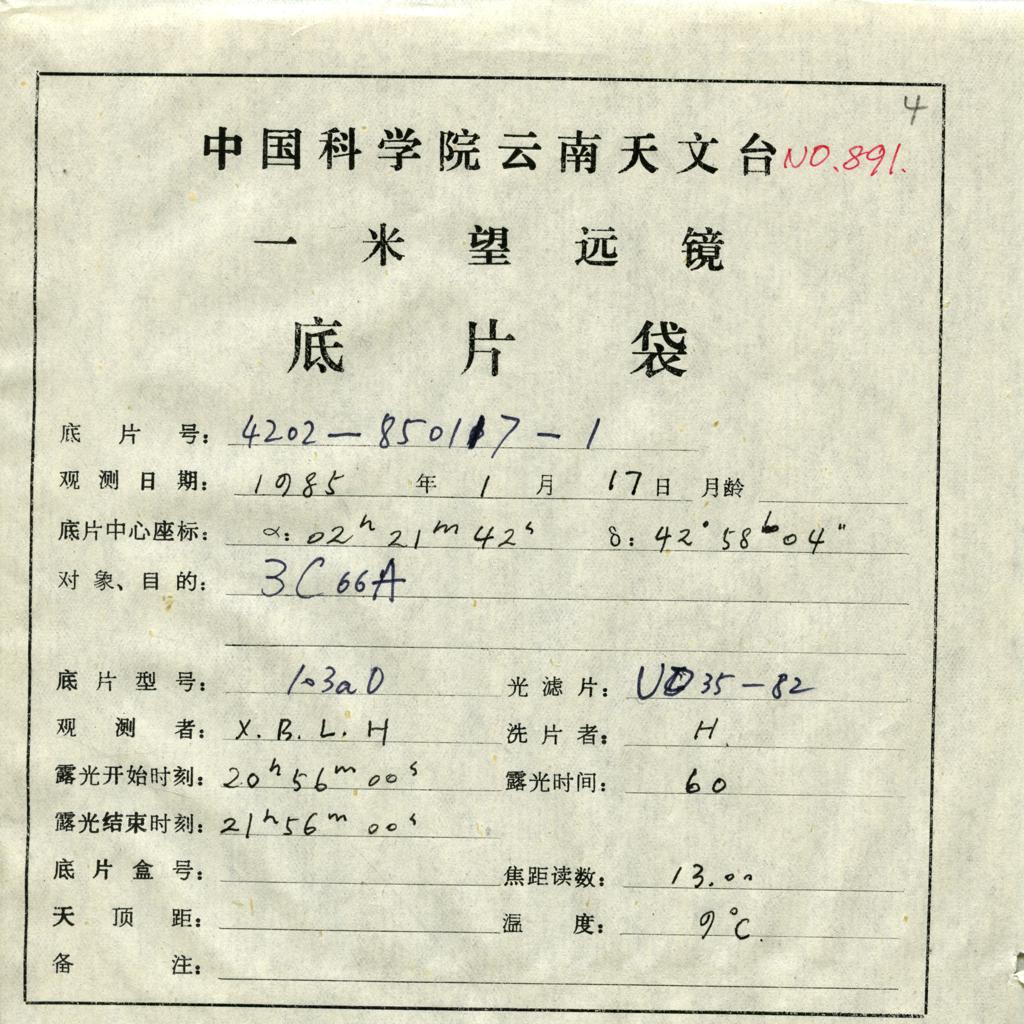 4
中国科学院云南天文台 NO.891.
一米望远镜
底片袋
底片号: 4202-850117-1
观测日期: 1985年1月17日 月龄
底片中心座标: α: 02h 21m 42s δ: 42° 58' 04"
对象、目的: 3C66A
底片型号: 103aD 光滤片: 35-82
观测者: X.B.L.H 洗片者: H.
露光开始时刻: 20h 56m 00s 露光时间: 60
露光结束时刻: 21h 56m 00s
底片盒号: 焦距读数: 13.00
天顶距: 温度: 9°C.
备注: